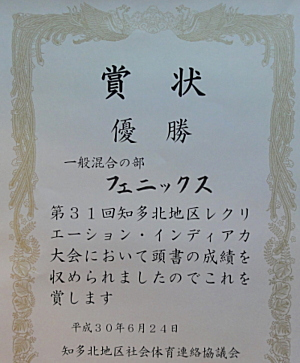 賞状
優勝
一般混合の部
フェニックス
第31回知多北地区レクリ
エーション・インディアカ
大会において頭書の成績を
収められましたのでこれを
賞します
平成30年6月24日
知多北地区社会体育連絡協議会